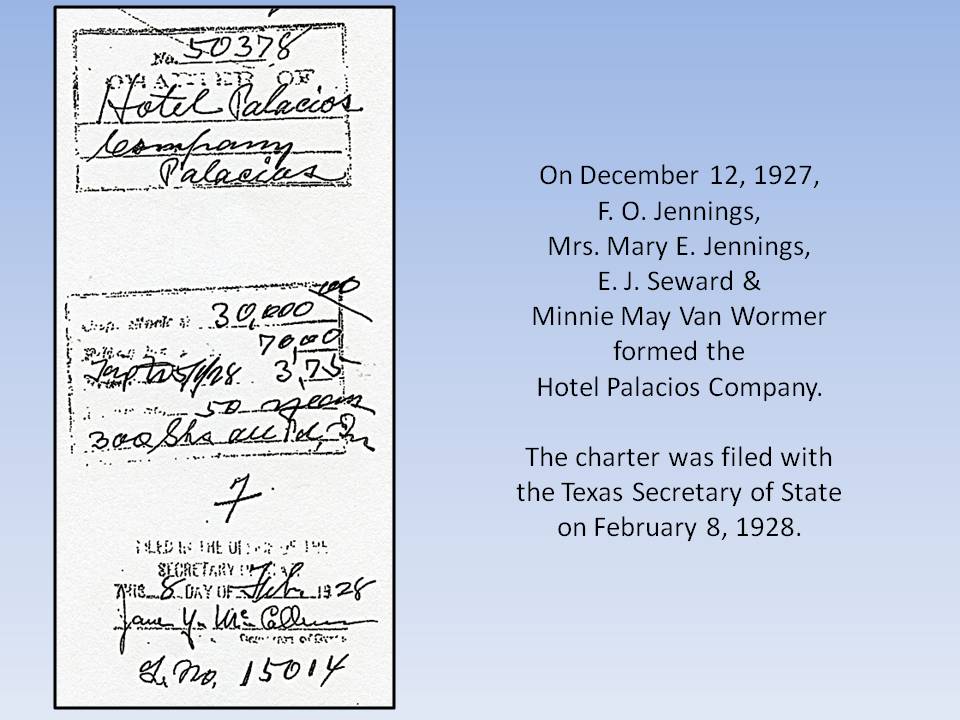 No. 50378
CHARTER OF
Hotel Palacios
Company
Palacios
Cap. stock $ 30,000 00
70,00
5/1/28 3,75
50 years
300 Shs all Pd, In
7
FILED IN THE OFFICE OF THE
SECRETARY OF STATE
THIS 8 DAY OF Feb 1928
Jane Y. McCallum
Secretary of State
L. No. 15014
On December 12, 1927,
F. O. Jennings,
Mrs. Mary E. Jennings,
E. J. Seward &
Minnie May Van Wormer
formed the
Hotel Palacios Company.
The charter was filed with
the Texas Secretary of State
on February 8, 1928.